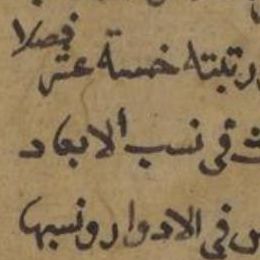 ورتبته خمسة عشر فصلا
فى نسب الابعاد
فى الادوار ونسبها